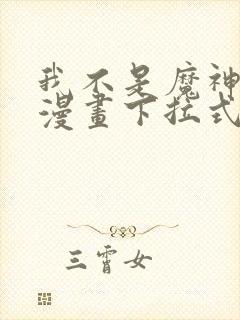 我不是魔神
漫畫下拉式
三霄女